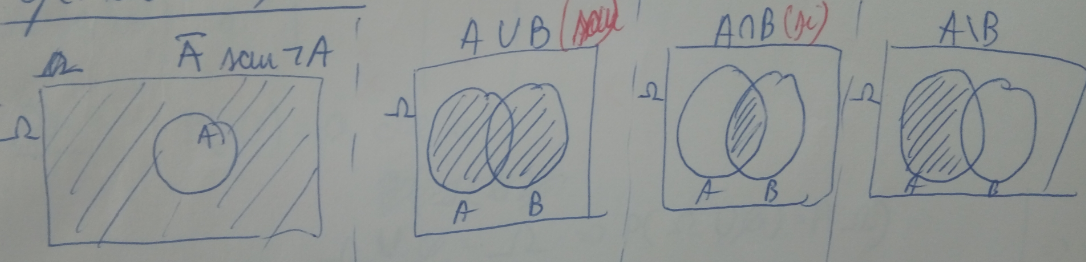 Ā sau ¬A
Ω
A
A ∪ B (sau)
Ω
A B
A∩B (și)
Ω
A B
A\B
Ω
A B